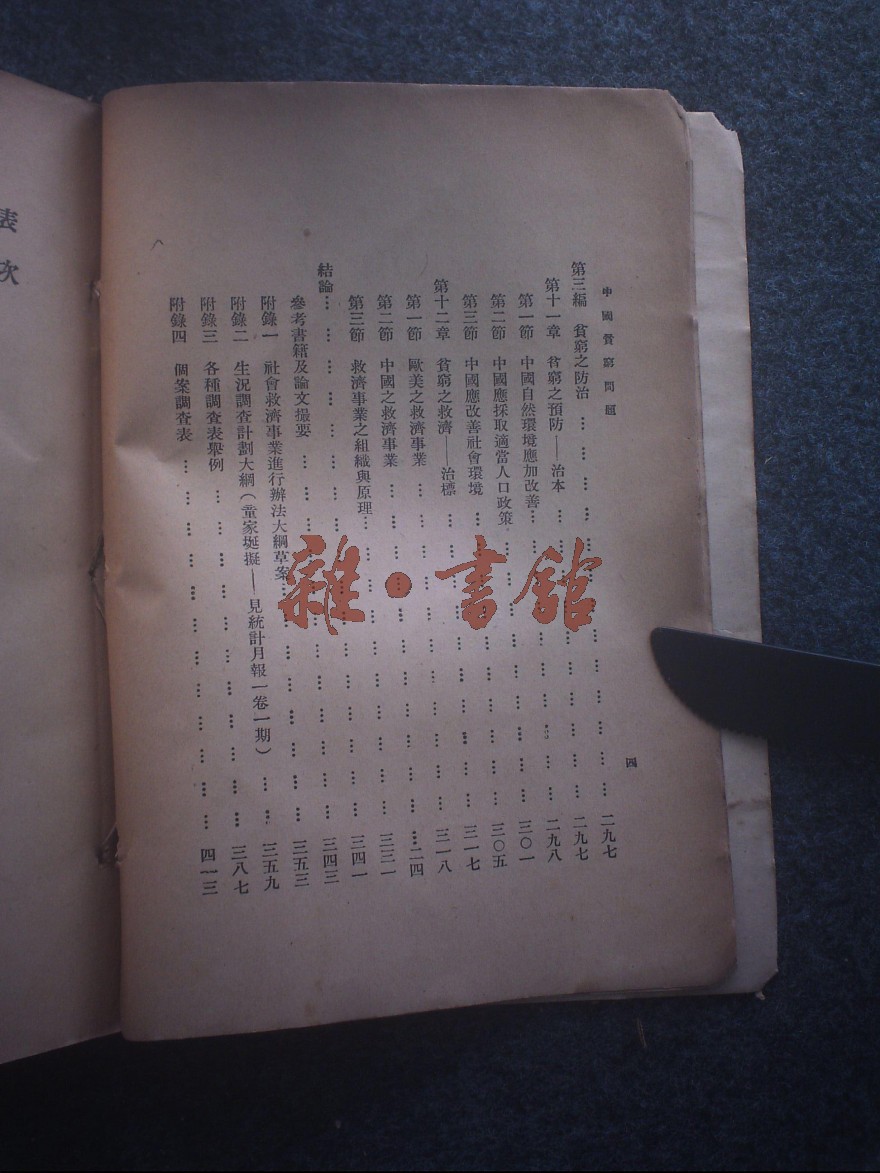 中國貧窮問題 四
第三編 貧窮之防治 ……………………… 二九七
第十一章 貧窮之預防——治本 ……………………… 二九七
第一節 中國自然環境應加改善 ……………………… 二九八
第二節 中國應採取適當人口政策 ……………………… 三〇一
第三節 中國應改善社會環境 ……………………… 三〇五
第十二章 貧窮之救濟——治標 ……………………… 三一七
第一節 歐美之救濟事業 ……………………… 三一八
第二節 中國之救濟事業 ……………………… 二四
第三節 救濟事業之組織與原理 ……………………… 三三一
結論 ……………………… 三四一
參考書籍及論文撮要 ……………………… 三四三
附錄一 社會救濟事業進行辦法大綱草案 ……………………… 三五三
附錄二 生況調查計劃大綱(童家埏擬——見統計月報一卷一期) …… 三五九
附錄三 各種調查表舉例 ……………………… 三八七
附錄四 個案調查表 ……………………… 四一三
表次
雜·書館